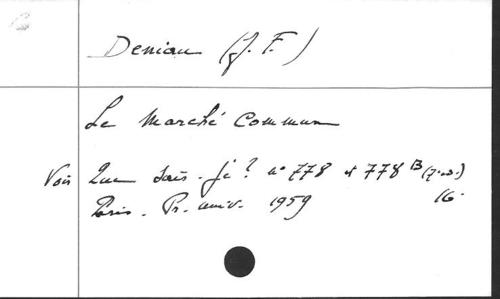 Deniau (J. F.)
Le Marché Commun
Voir Que sais-je? n° 778 et 778 B (7e éd.)
Paris. Pr. univ. 1959 16.